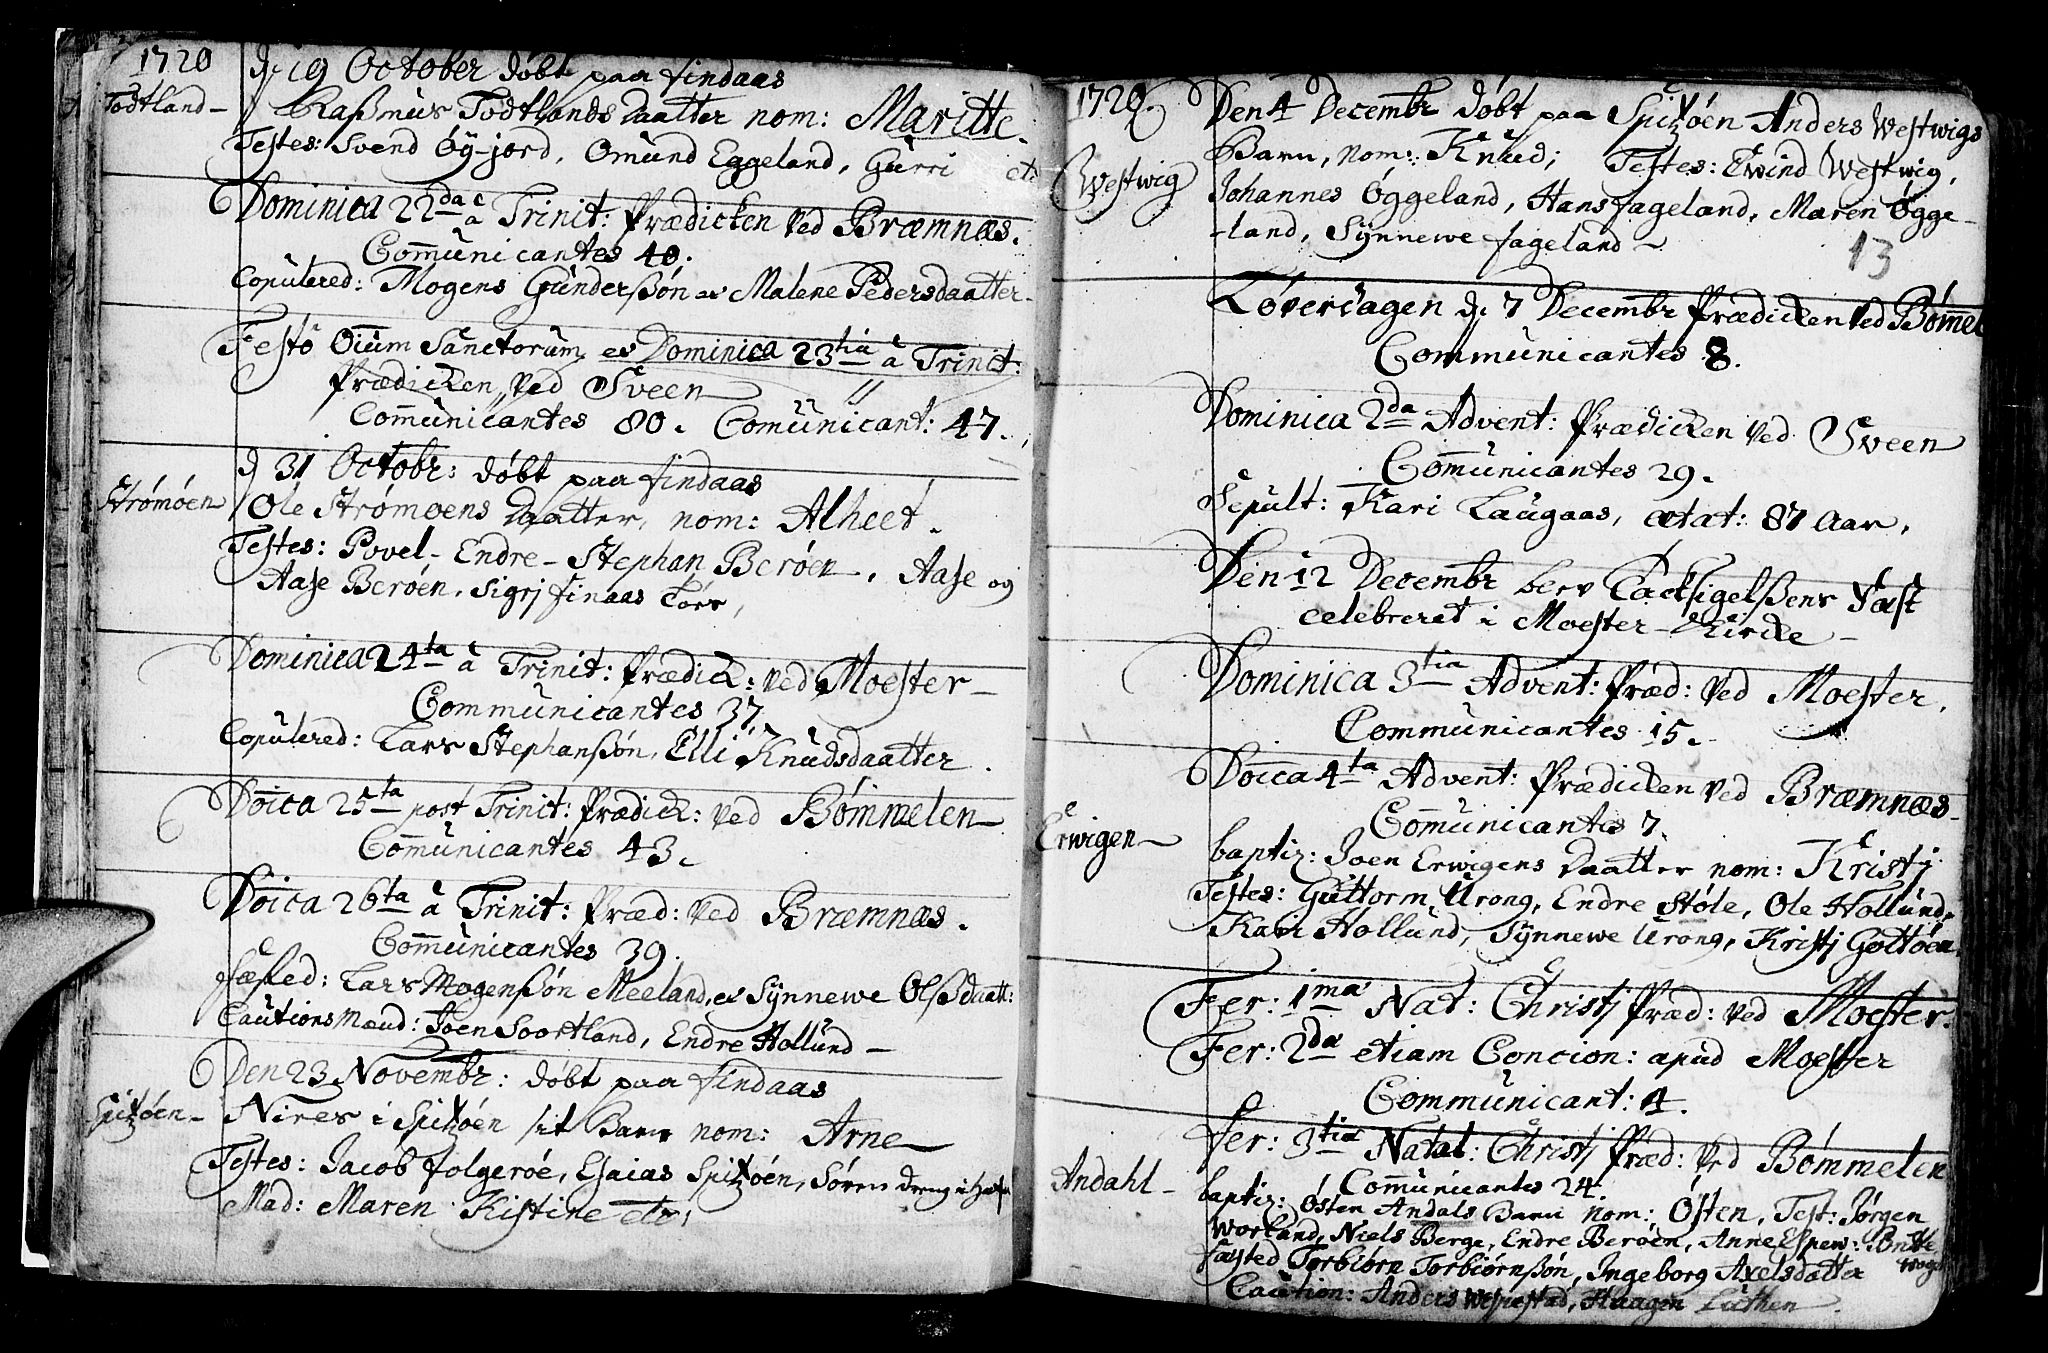 1720
d. 19 October døbt paa findaas
Todtland
Rasmus Todtlands Daatter nom: Maritte
Testes: Svend Øy-jord, Omund Eggeland, Gurri etc
Dominica 22da à Trinit: Prædicken ved Bræmnæs.
Com̅unicantes 40.
Copulered: Mogens Gunderßøn et Malene Pedersdaatter
Festo Oi̅um Sanctorum, et Dominica 23tia à Trinit:
Prædicken, ved Sveen "
Com̅unicantes 80. Comunicant: 47.
d 31 Octobr: døbt paa findaas
Strømøen
Ole Strømøens Daatter, nom: Alheet.
Testes: Povel - Endre - Stephan Berøen, Aase og
Aase Berøen, Sigrj finaas
Dominica 24ta à Trinit: Prædick: ved Moester
Communicantes 37.
Copulered: Lars Stephanßøn, Elli Knudsdaatter.
Doi̅ca 25ta post Trinit: Prædick: ved Bømmelen
Com̅unicantes 43.
Doi̅ca 26ta à Trinit: Præd: ved Bræmnæs.
Com̅unicantes 39.
fæsted: Lars Mogenßøn Meeland, et Synnewe Olsdaatt:
Cautions Mænd: Joen Soortland, Endre Hollund
Den 23 Novembr: døbt paa findaas
Spitzøen
Nires i Spitzøen sit Barn nom: Arne
Testes: Jacob folgerøe, Esaias Spitzøen, Søren dreng i
Mad: Maren Kistine etc;
1720.
Den 4 Decembr døbt paa Spitzøen Anders Westwigs
Westwig
Barn, nom: Knud; Testes: Ewind Westwig,
Johannes Øggeland, Hans fageland, Maren Øgge-
-land, Synnewe fageland
13
Løverdagen d. 7 Decembr Prædicken ved Bømmel
Communicantes 8.
Dominica 2da Advent: Prædicken ved Sveen
Com̅unicantes 29.
Sepult: Kari Laugaas, ætat: 87 Aar,
Den 12 Decembr blev Tacksigelßens fæst
celebreret i Moester Kircke
Dominica 3tia Advent: Præd: ved Moester,
Communicantes 15.
Doi̅ca 4ta Advent: Prædicken ved Bræmnæs
Com̅unicantes 7.
Erwigen
baptiz: Joen Erwigens Daatter nom: Kristj
Testes: Guttorm Urong, Endre Støle, Ole Hollund,
Kari Hollund, Synnewe Urong, Kristj Goltøen
Fer: 1ma Nat: Christj Præd: ved Moester.
Fer: 2da etiam Concion: apud Moester
Communicant: 4.
fer: 3tia Natal: Christj Præd: ved Bømmelen
Com̅unicantes 24.
Andahl
baptiz: Østen Andals Barn nom: Østen, Test: Jørgen
Worland, Niels Berge, Endre Berøen, Anne Espew:
fæsted Torbiørn Torbiørnßøn, Ingeborg Axelsdatter
Caution: Anders Haagen